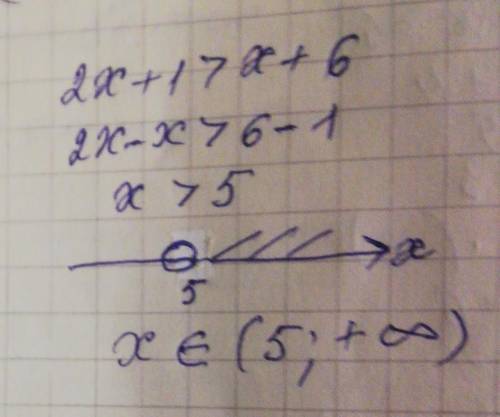 2x+1>x+6
2x-x>6-1
x>5
x
5
x∈(5;+∞)